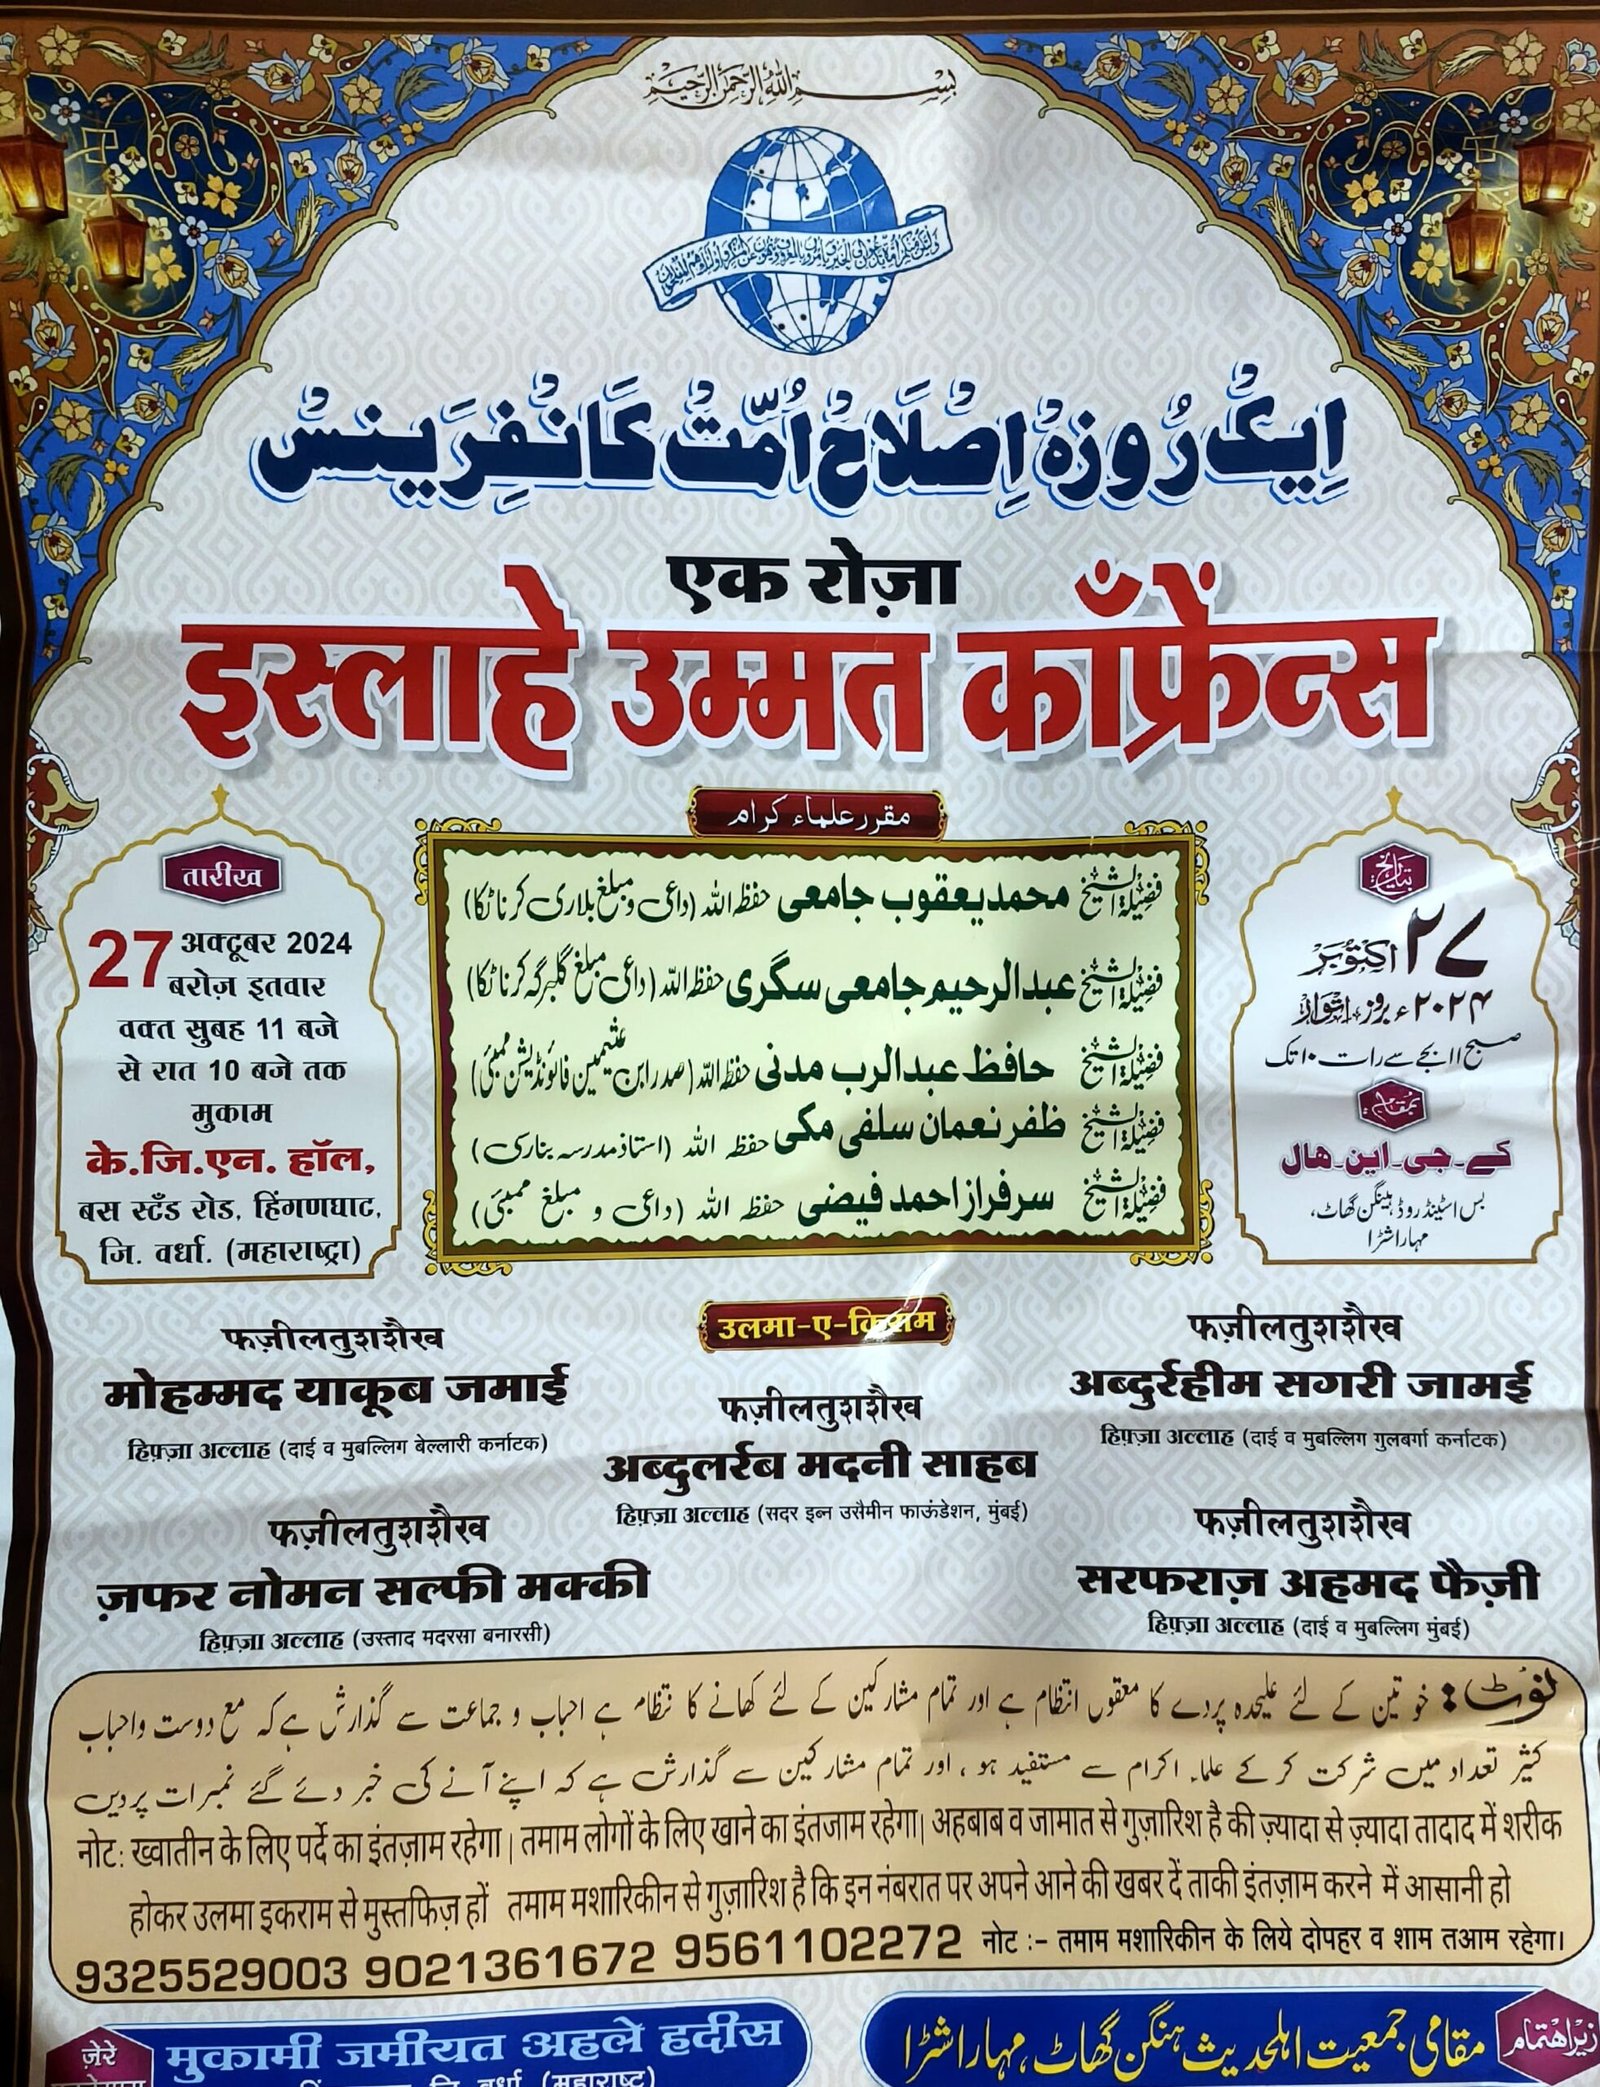 بسم الله الرحمن الرحيم
ایک روزہ اصلاح امت کانفرینس
एक रोज़ा
इस्लाहे उम्मत काँफ्रेंन्स
مقرر علماء کرام
فضیلۃ الشیخ محمد یعقوب جامعی حفظہ اللہ (داعی و مبلغ بلاری کرناٹکا)
فضیلۃ الشیخ عبدالرحیم جامعی سگری حفظہ اللہ (داعی مبلغ گلبرگہ کرناٹکا)
فضیلۃ الشیخ حافظ عبدالرب مدنی حفظہ اللہ (صدر ابن عثیمین فائونڈیشن ممبئی)
فضیلۃ الشیخ ظفر نعمان سلفی مکی حفظہ اللہ (استاذ مدرسہ بناری)
فضیلۃ الشیخ سرفراز احمد فیضی حفظہ اللہ (داعی و مبلغ ممبئی)
तारीख
27 अक्टूबर 2024
बरोज़ इतवार
वक्त सुबह 11 बजे
से रात 10 बजे तक
मुकाम
के.जि.एन. हॉल,
बस स्टँड रोड, हिंगणघाट,
जि. वर्धा. (महाराष्ट्रा)
بتاریخ
۲۷ اکتوبر
۲۰۲۴ء بروز اتوار
صبح ۱۱ بجے سے رات ۱۰ تک
بمقام
کے۔جی۔این۔ھال
بس اسٹینڈ روڈ ہینگن گھاٹ،
مہاراشٹرا
उलमा-ए-किराम
फज़ीलतुशशैख
मोहम्मद याकूब जमाई
हिफ़्ज़ा अल्लाह (दाई व मुबल्लिग बेल्लारी कर्नाटक)
फज़ीलतुशशैख
अब्दुर्रहीम सगरी जामई
हिफ़्ज़ा अल्लाह (दाई व मुबल्लिग गुलबर्गा कर्नाटक)
फज़ीलतुशशैख
अब्दुलर्रब मदनी साहब
हिफ़्ज़ा अल्लाह (सदर इब्न उसैमीन फाऊंडेशन, मुंबई)
फज़ीलतुशशैख
ज़फर नोमन सल्फी मक्की
हिफ़्ज़ा अल्लाह (उस्ताद मदरसा बनारसी)
फज़ीलतुशशैख
सरफराज़ अहमद फैज़ी
हिफ़्ज़ा अल्लाह (दाई व मुबल्लिग मुंबई)
نوٹ: خوتین کے لئے علیحدہ پردے کا معقوں انتظام ہے اور تمام مشارکین کے لئے کھانے کا نتظام ہے احباب و جماعت سے گذارش ہے کہ مع دوست واحباب
کثیر تعداد میں شرکت کر کے علماء اکرام سے مستفید ہو ، اور تمام مشارکین سے گذارش ہے کہ اپنے آنے کی خبر دئے گئے نمبرات پر دیں
नोट: ख्वातीन के लिए पर्दे का इंतज़ाम रहेगा। तमाम लोगों के लिए खाने का इंतजाम रहेगा। अहबाब व जामात से गुज़ारिश है की ज़्यादा से ज़्यादा तादाद में शरीक
होकर उलमा इकराम से मुस्तफिज़ हों तमाम मशारिकीन से गुज़ारिश है कि इन नंबरात पर अपने आने की खबर दें ताकी इंतज़ाम करने में आसानी हो
9325529003 9021361672 9561102272 नोट :- तमाम मशारिकीन के लिये दोपहर व शाम तआम रहेगा।
ज़ेरे
मुकामी जमीयत अहले हदीस
जि. वर्धा (महाराष्ट)
زیر اھتمام
مقامی جمعیت اہلحدیث ہنگن گھاٹ، مہاراشٹرا